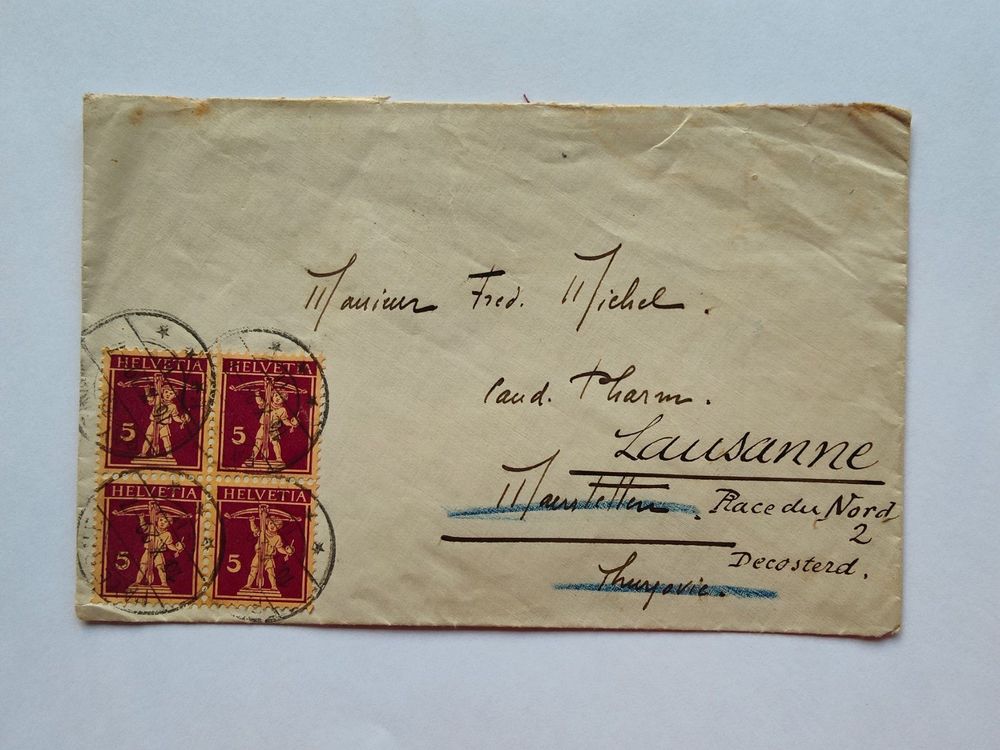 Monsieur Fred. Michel.
Cand. Pharm.
Lausanne
Maerstetten. Place du Nord
2
Decosterd.
Thurgovie.
HELVETIA HELVETIA
5 5
HELVETIA HELVETIA
5 5